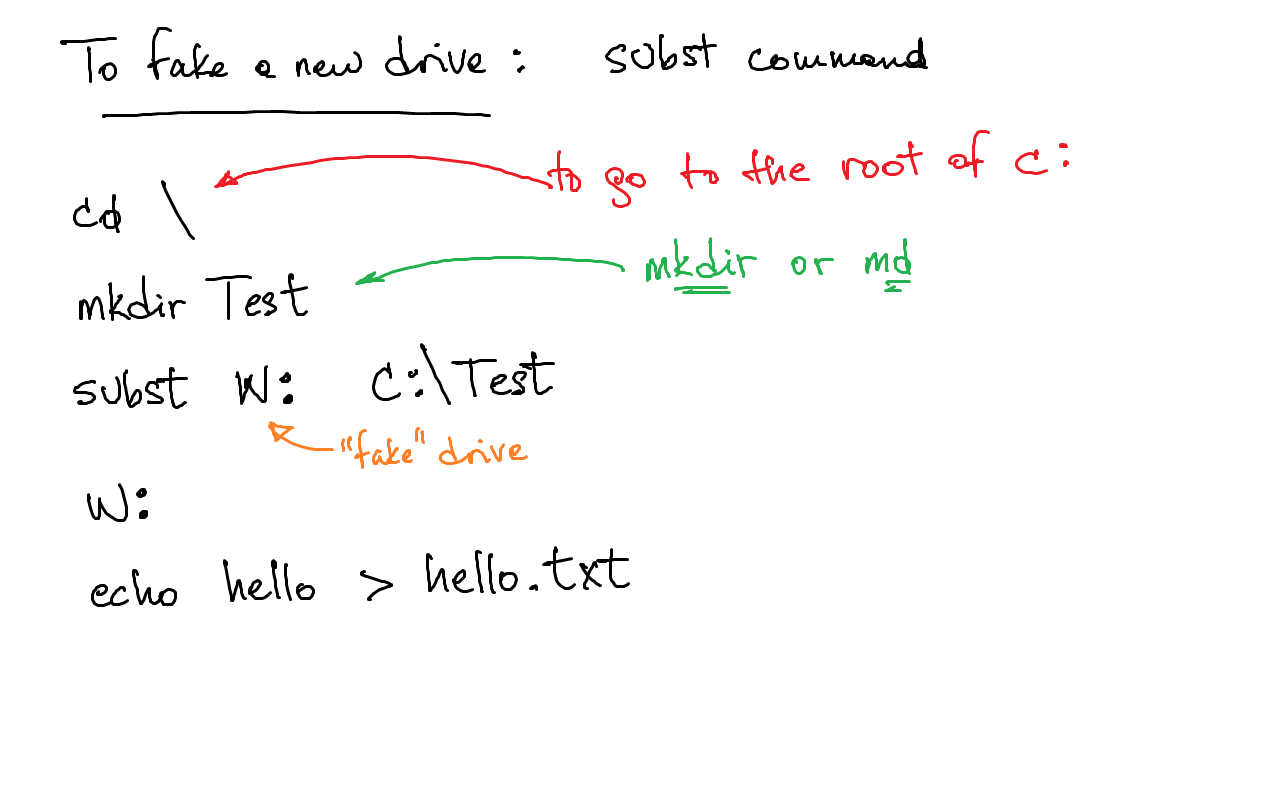 To fake a new drive : subst command
to go to the root of c:
cd \
mkdir or md
mkdir Test
subst W: C:\Test
"fake" drive
W:
echo hello > hello.txt